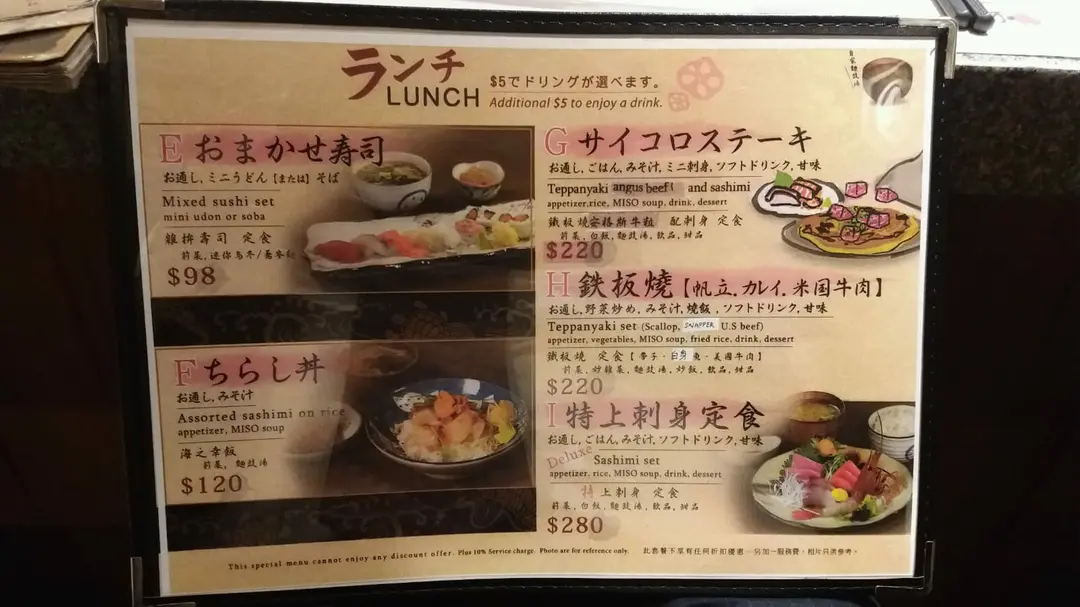 ランチ
LUNCH
$5でドリングが選べます。
Additional $5 to enjoy a drink.
E おまかせ寿司
お通し, ミニうどん【または】そば
Mixed sushi set
mini udon or soba
雜拚壽司 定食
前菜, 迷你烏冬/蕎麥麵
$98
F ちらし丼
お通し, みそ汁
Assorted sashimi on rice
appetizer, MISO soup
海之幸飯
前菜, 麵豉湯
$120
G サイコロステーキ
お通し, ごはん, みそ汁, ミニ刺身, ソフトドリンク, 甘味
Teppanyaki angus beef and sashimi
appetizer, rice, MISO soup, drink, dessert
鐵板燒安格斯牛粒 配刺身 定食
前菜, 白飯, 麵豉湯, 飲品, 甜品
$220
H 鉄板燒【帆立. カレイ. 米国牛肉】
お通し, 野菜炒め, みそ汁, 燒飯, ソフトドリンク, 甘味
Teppanyaki set (Scallop, SNAPPER U.S beef)
appetizer, vegetables, MISO soup, fried rice, drink, dessert
鐵板燒 定食【帶子・白身魚・美國牛肉】
前菜, 炒雜菜, 麵豉湯, 炒飯, 飲品, 甜品
$220
I 特上刺身定食
お通し, ごはん, みそ汁, ソフトドリンク, 甘味
Deluxe Sashimi set
appetizer, rice, MISO soup, drink, dessert
特上刺身 定食
前菜, 白飯, 麵豉湯, 飲品, 甜品
$280
This special menu cannot enjoy any discount offer. Plus 10% Service charge. Photo are for reference only. 此套餐不享有任何折扣優惠，另加一服務費，相片只供參考。